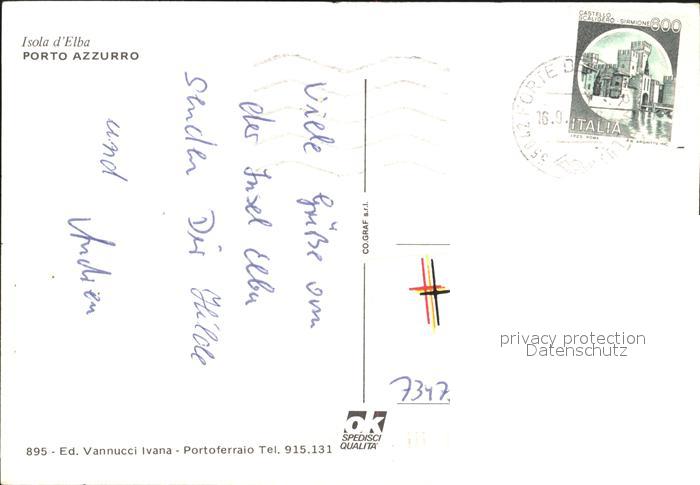 Isola d'Elba
PORTO AZZURRO
Viele Grüße von
der Insel Elba
Senden Dir Hilde
und
CASTELLO
SCALIGERO - SIRMIONE
600
ITALIA
16.9.
CO.GRAF s.r.l.
privacy protection
Datenschutz
7347
ok
SPEDISCI
QUALITA'
895 - Ed. Vannucci Ivana - Portoferraio Tel. 915.131